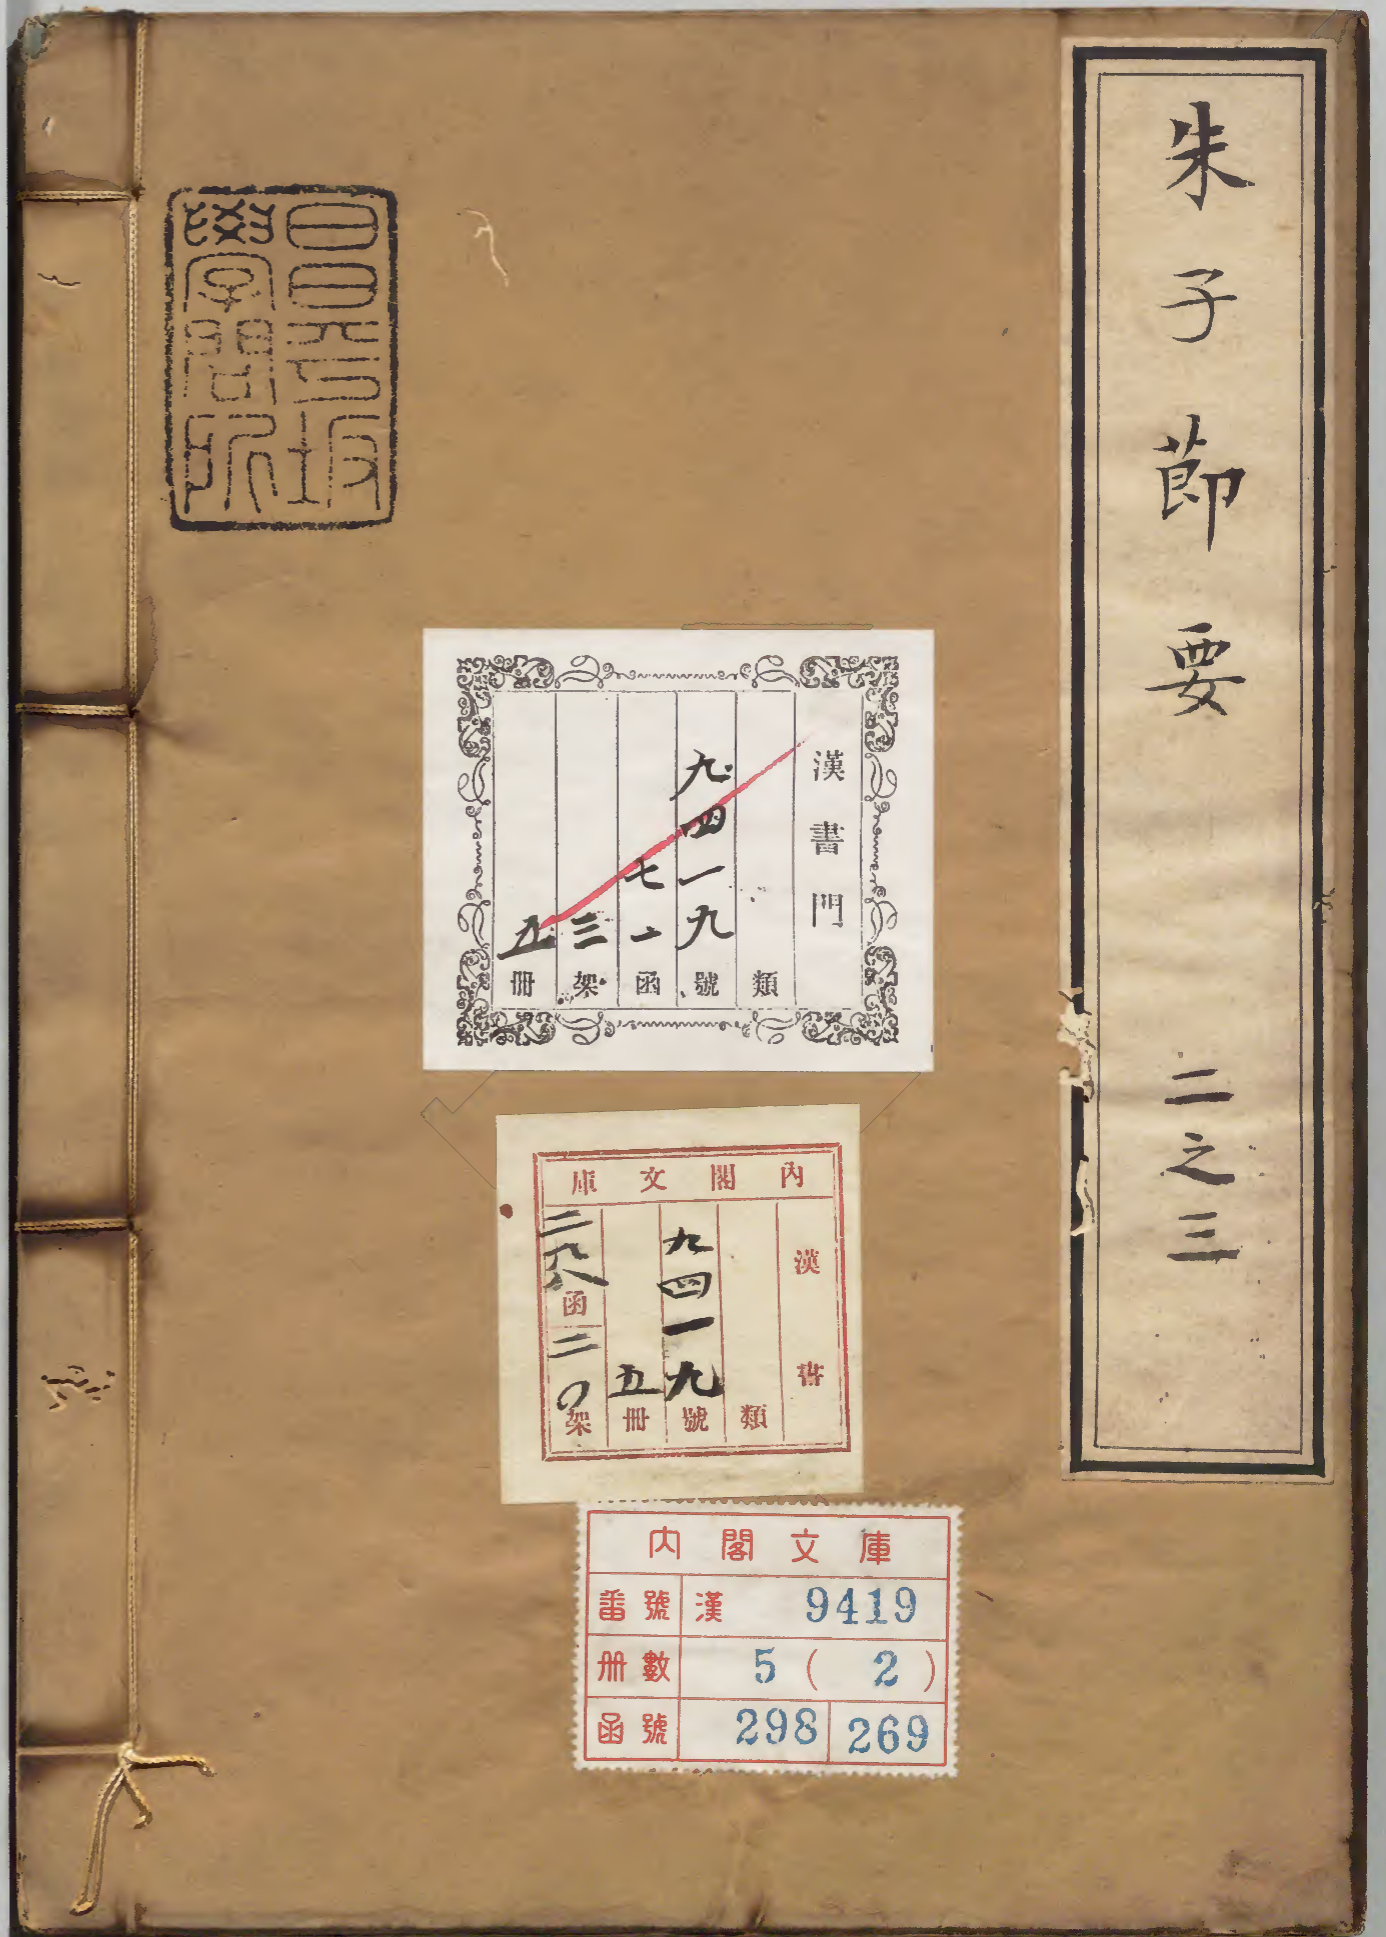 朱子莭要 二之三
昌平坂
學問所
漢書門
類
九四一九號
七一函
三架
五冊
內閣文庫
漢書
類
九四一九號
五冊
二九八函
二〇架
内閣文庫
番號 漢 9419
册數 5 ( 2 )
函號 298 269